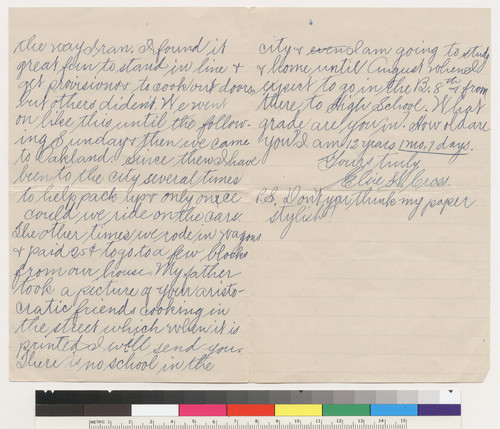 the way I ran. I found it
great fun to stand in line &
get provisions & to cook out doors
but others dident. We went
on like this until the follow-
ing Sunday & then we came
to Oakland. Since then I have
been to the city several times
to help pack up & only once
could we ride on the cars.
The other times we rode in wagons
& paid 25¢ to go to a few blocks
from our house. My father
took a picture of your aristo-
cratic friends cooking in
the street which when it is
printed I will send you.
There is no school in the
city & even I am going to study
& home until August when I
expect to go in the B. 8th & from
there to High School. What
grade are you in. How old are
you? I am 12 years 1 mo, 7 days.
Yours truly
Cross.
P.S. Don't you think my paper
stylish
METRIC 1 2 3 4 5 6 7 8 9 10 11 12 13 14 15